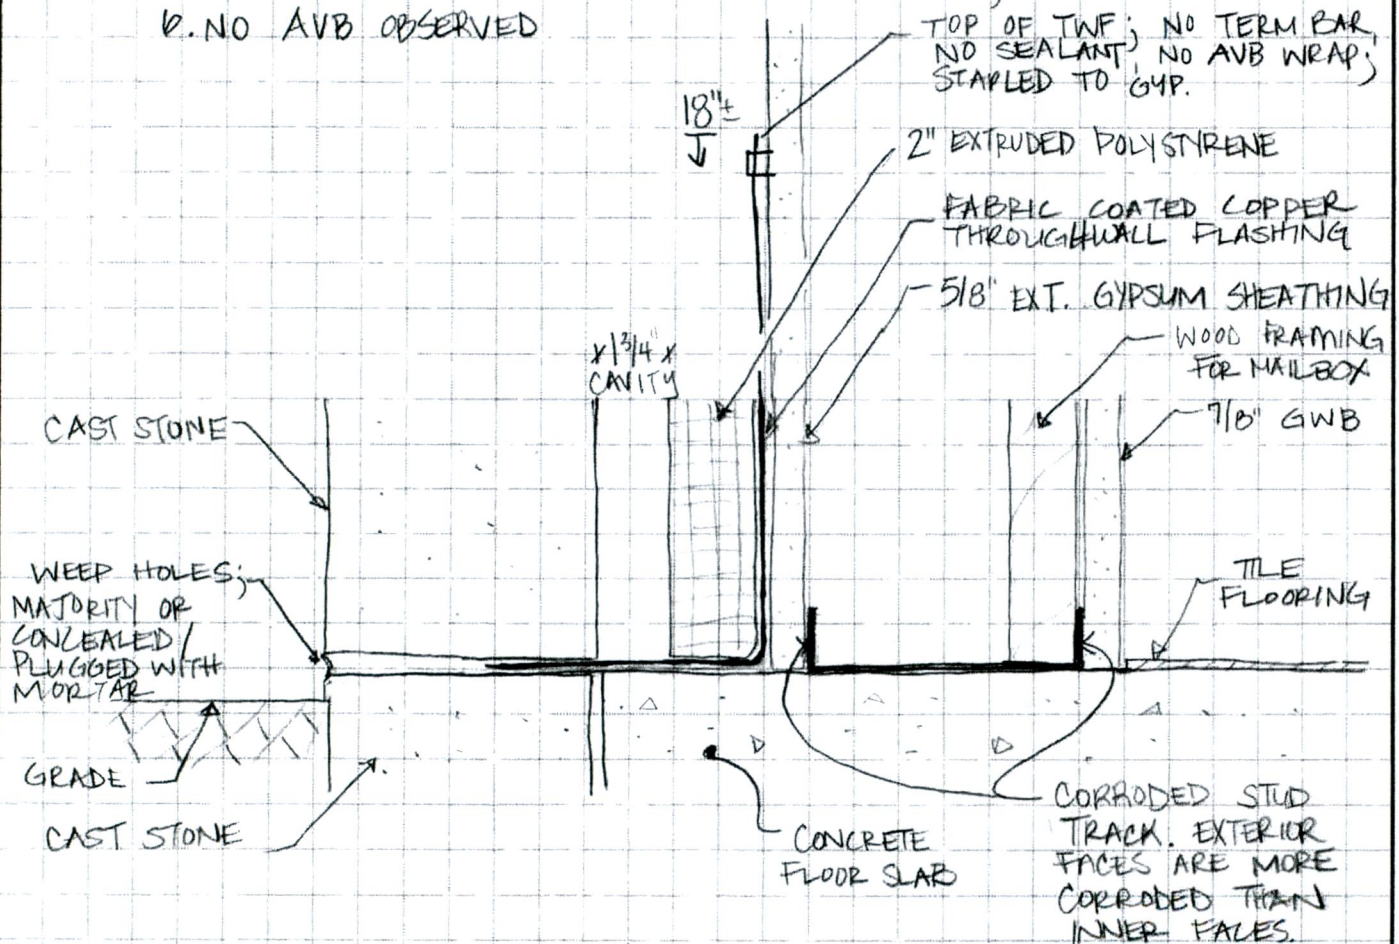 6. NO AVB OBSERVED
TOP OF TWF; NO TERM BAR,
NO SEALANT, NO AVB WRAP;
STAPLED TO GYP.
18"±
2" EXTRUDED POLYSTYRENE
FABRIC COATED COPPER
THROUGHWALL FLASHING
5/8" EXT. GYPSUM SHEATHING
WOOD FRAMING
FOR MAILBOX
x 1 3/4" x
CAVITY
7/8" GWB
CAST STONE
WEEP HOLES;
MAJORITY OR
CONCEALED/
PLUGGED WITH
MORTAR
TILE
FLOORING
GRADE
CAST STONE
CONCRETE
FLOOR SLAB
CORRODED STUD
TRACK. EXTERIOR
FACES ARE MORE
CORRODED THAN
INNER FACES.